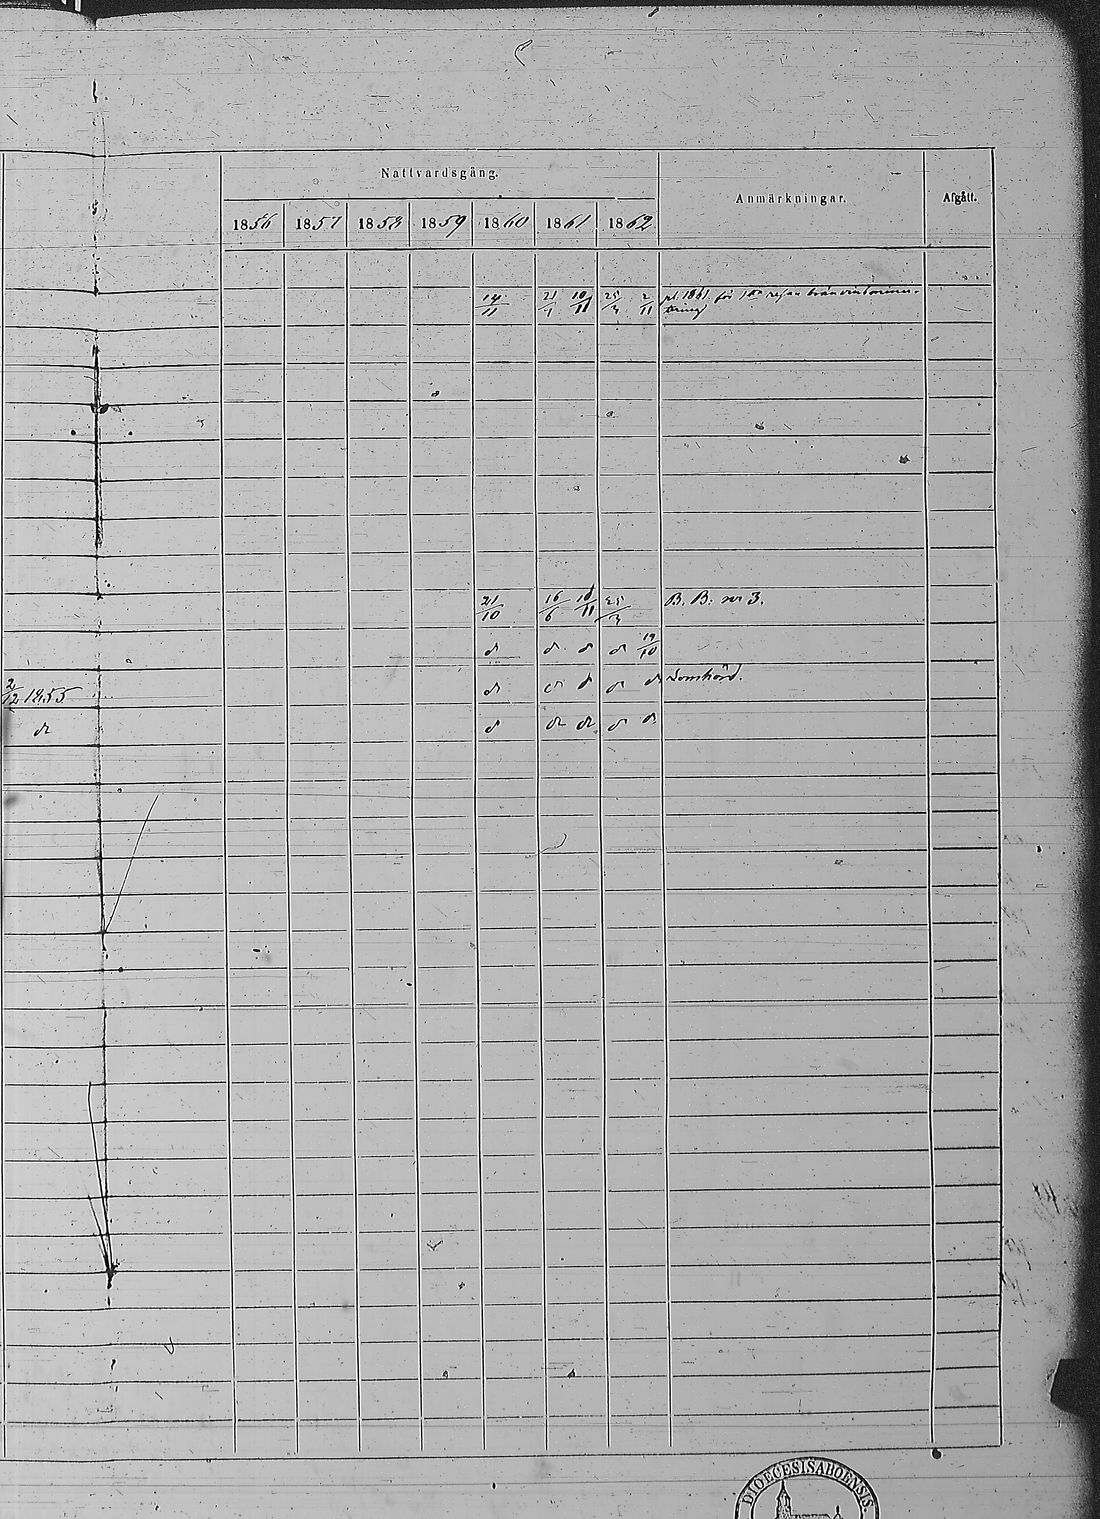 Nattvardsgång.
Anmärkningar.
Afgått.
1856 1857 1858 1859 1860 1861 1862
14/11 21/4 10/11 25/3 2/11 pl. 1861 för 1sta resan
21/10 16/6 10/11 25/3 B. B: nr 3.
d d d d 19/10
2/12 1855 d d d d d Lomhörd.
d d d d d d
DIOECESIS ABOENSIS.